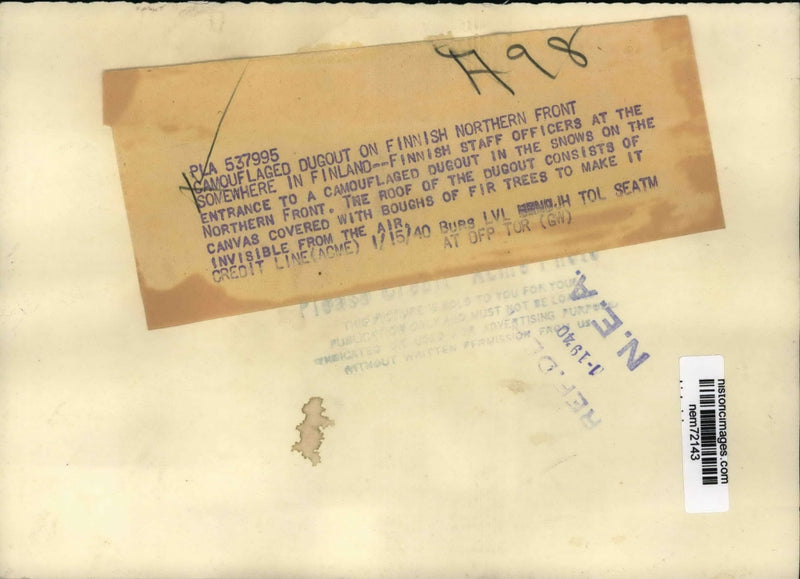 A98
PLA 537995
CAMOUFLAGED DUGOUT ON FINNISH NORTHERN FRONT
SOMEWHERE IN FINLAND--FINNISH STAFF OFFICERS AT THE
ENTRANCE TO A CAMOUFLAGED DUGOUT IN THE SNOWS ON THE
NORTHERN FRONT. THE ROOF OF THE DUGOUT CONSISTS OF
CANVAS COVERED WITH BOUGHS OF FIR TREES TO MAKE IT
INVISIBLE FROM THE AIR.
CREDIT LINE(ACME) 1/15/40 BURS LVL JH TOL SEATM
AT DFP TOR (GW)
Please Credit Acme Photo
THIS PICTURE IS SOLD TO YOU FOR YOUR
PUBLICATION ONLY AND MUST NOT BE LOANED
SYNDICATED OR USED FOR ADVERTISING PURPOSES
WITHOUT WRITTEN PERMISSION FROM US
N.E.A.
1-1940
REF. DE
historicimages.com
nem72143